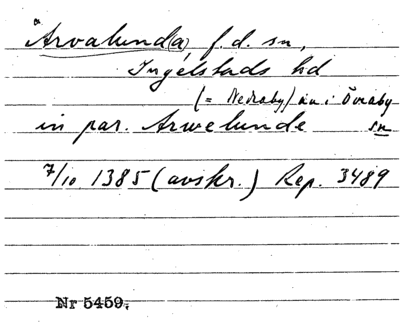 Årvalund(a), f.d. sn,
Ingelstads hd
(= Nedraby) nu i Övraby
in par. Arwelunde sn
7/10 1385 (avskr.) Rep. 3489
Nr 5459.